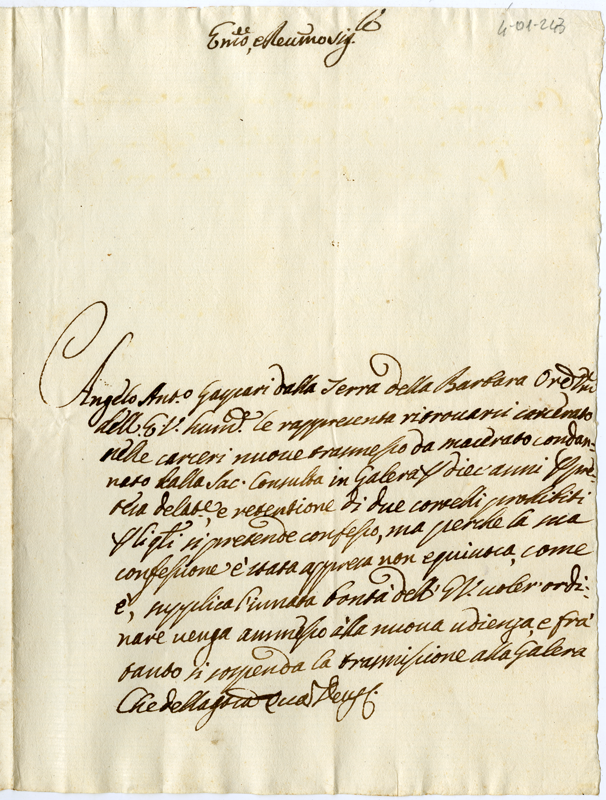 4-01-243
Em̃o, e Reumo Sig.re
Angelo Ant.o Gaspari dalla Terra della Barbara Ore
dell' E.V. humil.e le rappresenta ritrouarsi carcerato
nelle carceri nuoue trasmesso da macerato condan-
nato dalla Sac. Consulta in Galera p diec'anni p pre-
tesa delat.e, e retentione di due cortelli prohibiti
p li q̃li si pretende confesso, ma perche la sua
confessione è stata appresa non equiuoca, come
è, supplica l'innata bontà dell' E.V. uoler ordi-
nare uenga ammesso alla nuoua udienza, e frà
tanto si sospenda la trasmissione alla Galera
Che della gr̃a Quas Deus